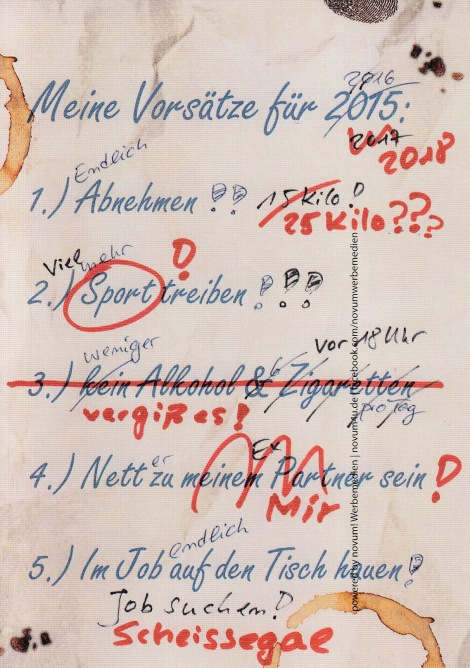 2016
Meine Vorsätze für 2015:
2017
2018
Endlich
1.) Abnehmen !! 15 Kilo!
25 Kilo???
Viel mehr !
2.) Sport treiben !!!!
weniger vor 18 Uhr
3.) kein Alkohol & 6 Zigaretten
vergiß es! pro Tag
er Ex
4.) Nett zu meinem Partner sein!
Mir
endlich
5.) Im Job auf den Tisch hauen!
Job suchen!
Scheissegal
powered by novum! Werbemedien | novum4u.de | facebook.com/novumwerbemedien